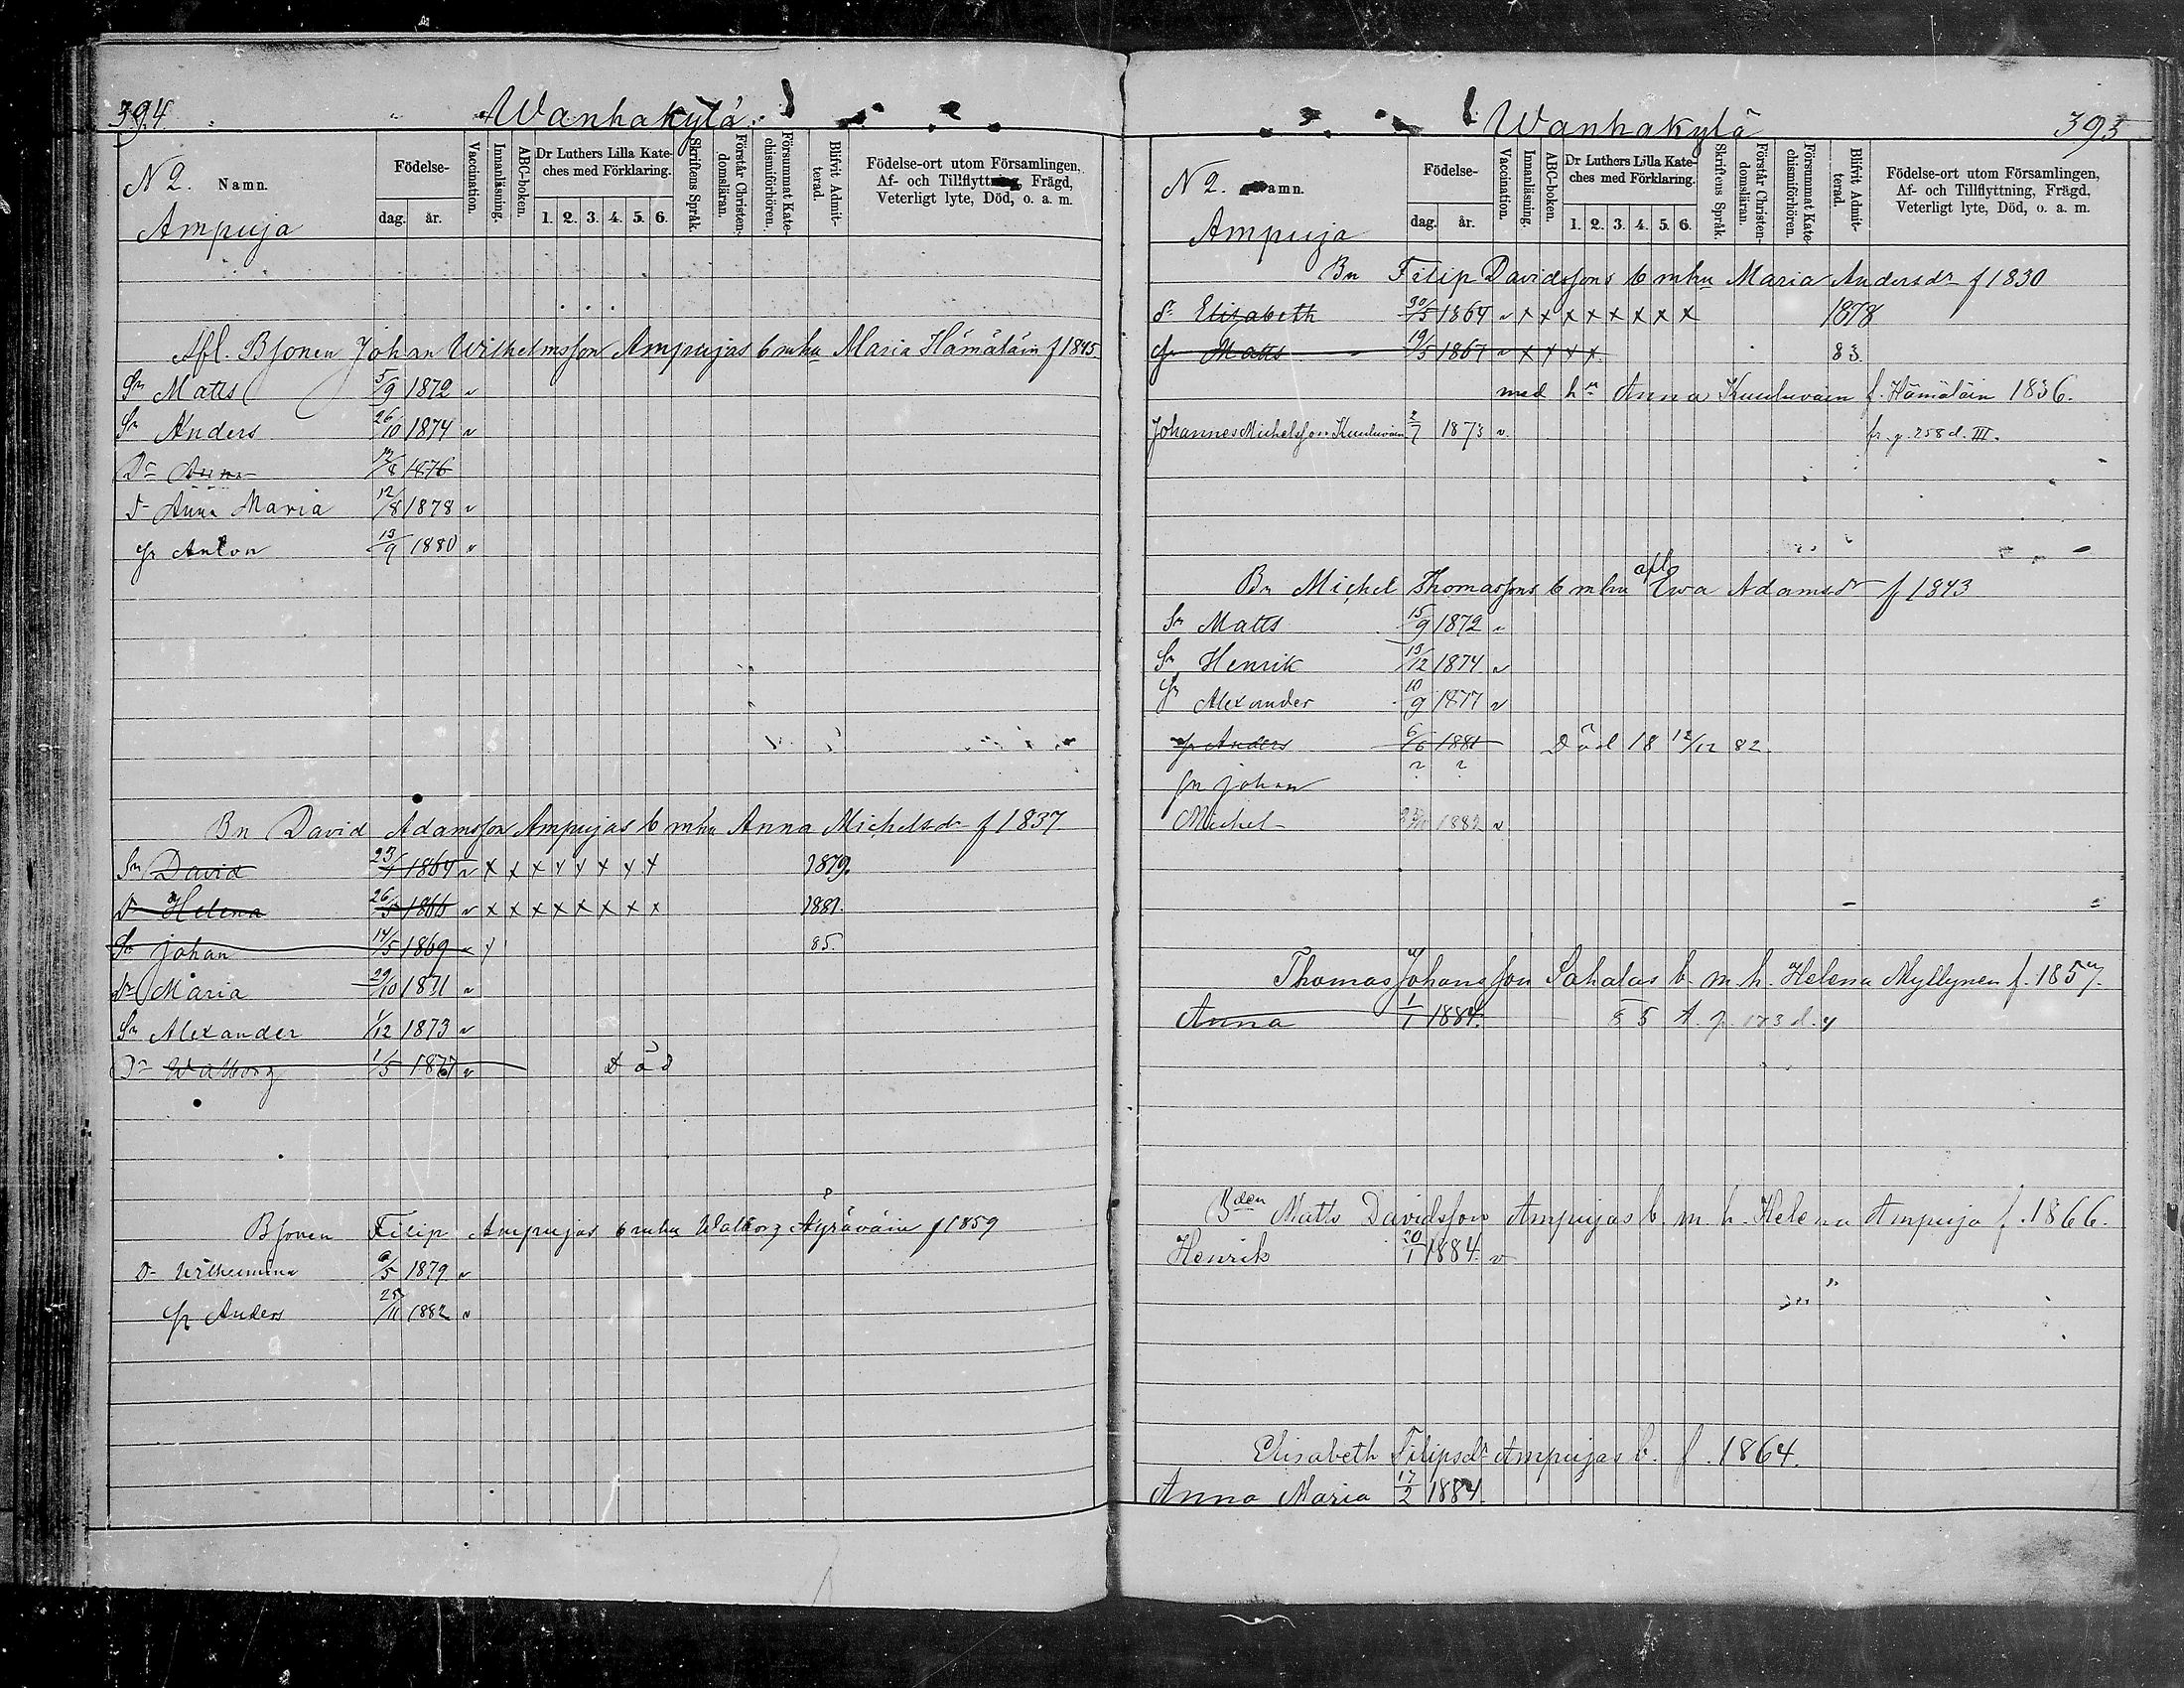 394.
Wanhakylä
N 2. Namn.
Födelse-
dag.
år.
Vaccination.
Innanläsning.
ABC-boken.
Dr Luthers Lilla Kate-
ches med Förklaring.
1. 2. 3. 4. 5. 6.
Skriftens Språk.
Förstår Christen-
domsläran.
Försummat Kate-
chismiförhören.
Blifvit Admit-
terad.
Födelse-ort utom Församlingen,
Af- och Tillflyttning, Frägd,
Veterligt lyte, Död, o. a. m.
Ampuja
Afl. Bsonen Johan Wilhelmsson Ampujas b mhu Maria Hämäläin f 1845
Sn Matts 5/9 1872 v
Sn Anders 26/10 1874 v
Dr Anna 12/8 1876
Dr Anna Maria 12/8 1878 v
Sn Anton 13/9 1880 v
Bn David Adamsson Ampujas b mhu Anna Michelsdr f 1837.
Sn David 23/4 1864 v x x x x x x x x 1879.
Dr Helena 26/5 1866 v x x x x x x x x 1881.
Sn Johan 14/5 1869 v y 85.
Dr Maria 29/10 1871 v
Sn Alexander 1/12 1873 v
Dr Walborg 1/5 1877 v Död
Bsonen Filip Ampujas b mhu Walborg Äyräväin f 1859
Dr Wilhelmina 6/5 1879 v
Sn Anders 25/11 1882 v
Wanhakylä
395
N 2. Namn.
Födelse-
dag.
år.
Vaccination.
Innanläsning.
ABC-boken.
Dr Luthers Lilla Kate-
ches med Förklaring.
1. 2. 3. 4. 5. 6.
Skriftens Språk.
Förstår Christen-
domsläran.
Försummat Kate-
chismiförhören.
Blifvit Admit-
terad.
Födelse-ort utom Församlingen,
Af- och Tillflyttning, Frägd,
Veterligt lyte, Död, o. a. m.
Ampuja
Bn Filip Davidssons b mhu Maria Andersdr f 1830
Dr Elisabeth 30/5 1864 v x x x x x x x x 1878
Sn Matts 19/5 1867 v x x x x 83.
med hu Anna Kuuluvain f. Hämäläin 1836.
Johannes Michelsson Kuuluvain 2/7 1873 v. fr. p. 258 d. III.
Bn Michel Thomassons b mhu afl Ewa Adamsdr f 1843
Sn Matts 15/9 1872 v
Sn Henrik 13/12 1874 v
Sn Alexander 10/9 1877 v
Sn Anders 6/6 1881 Död 18 12/12 82.
Sn Johan ? ?
Michel 1882 v
Thomas Johansson Sahalas b. m. h. Helena Myllynen f. 1857.
Anna 1/1 1884. 85 d. 4
Bden Matts Davidsson Ampujas b. m. h. Helena Ampuja f. 1866.
Henrik 20/1 1884. v
Elisabeth Filipsdr Ampujas b. f. 1864.
Anna Maria 17/2 1884.